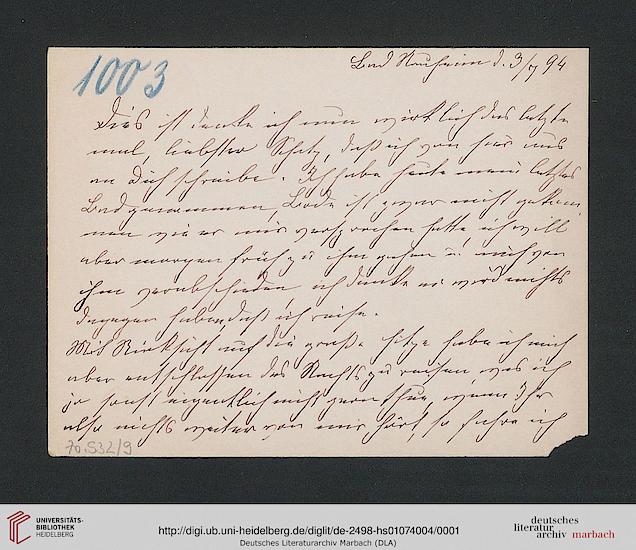 1003
Bad Nauheim d. 3/7 94
Dies ist denke ich nun wirklich das letzte
mal, liebster Schatz, daß ich von hier aus
an Dich schreibe. Ich habe heute mein letztes
Bad genommen, Bode ist zwar nicht gekom
men wie er mir versprochen hatte ich will
aber morgen früh zu ihm gehen u. mich von
ihm verabschieden ich denke er wird nichts
dagegen haben, daß ich reise.
Mit Rücksicht auf die große Hitze habe ich mich
aber entschlossen des Nachts zu reisen was ich
ja sonst eigentlich nicht gern thue, wenn Ihr
also nichts weiter von mir hört, so fahre ich
70.532/9
UNIVERSITÄTS-
BIBLIOTHEK
HEIDELBERG
http://digi.ub.uni-heidelberg.de/diglit/de-2498-hs01074004/0001
Deutsches Literaturarchiv Marbach (DLA)
deutsches
literatur
archiv marbach